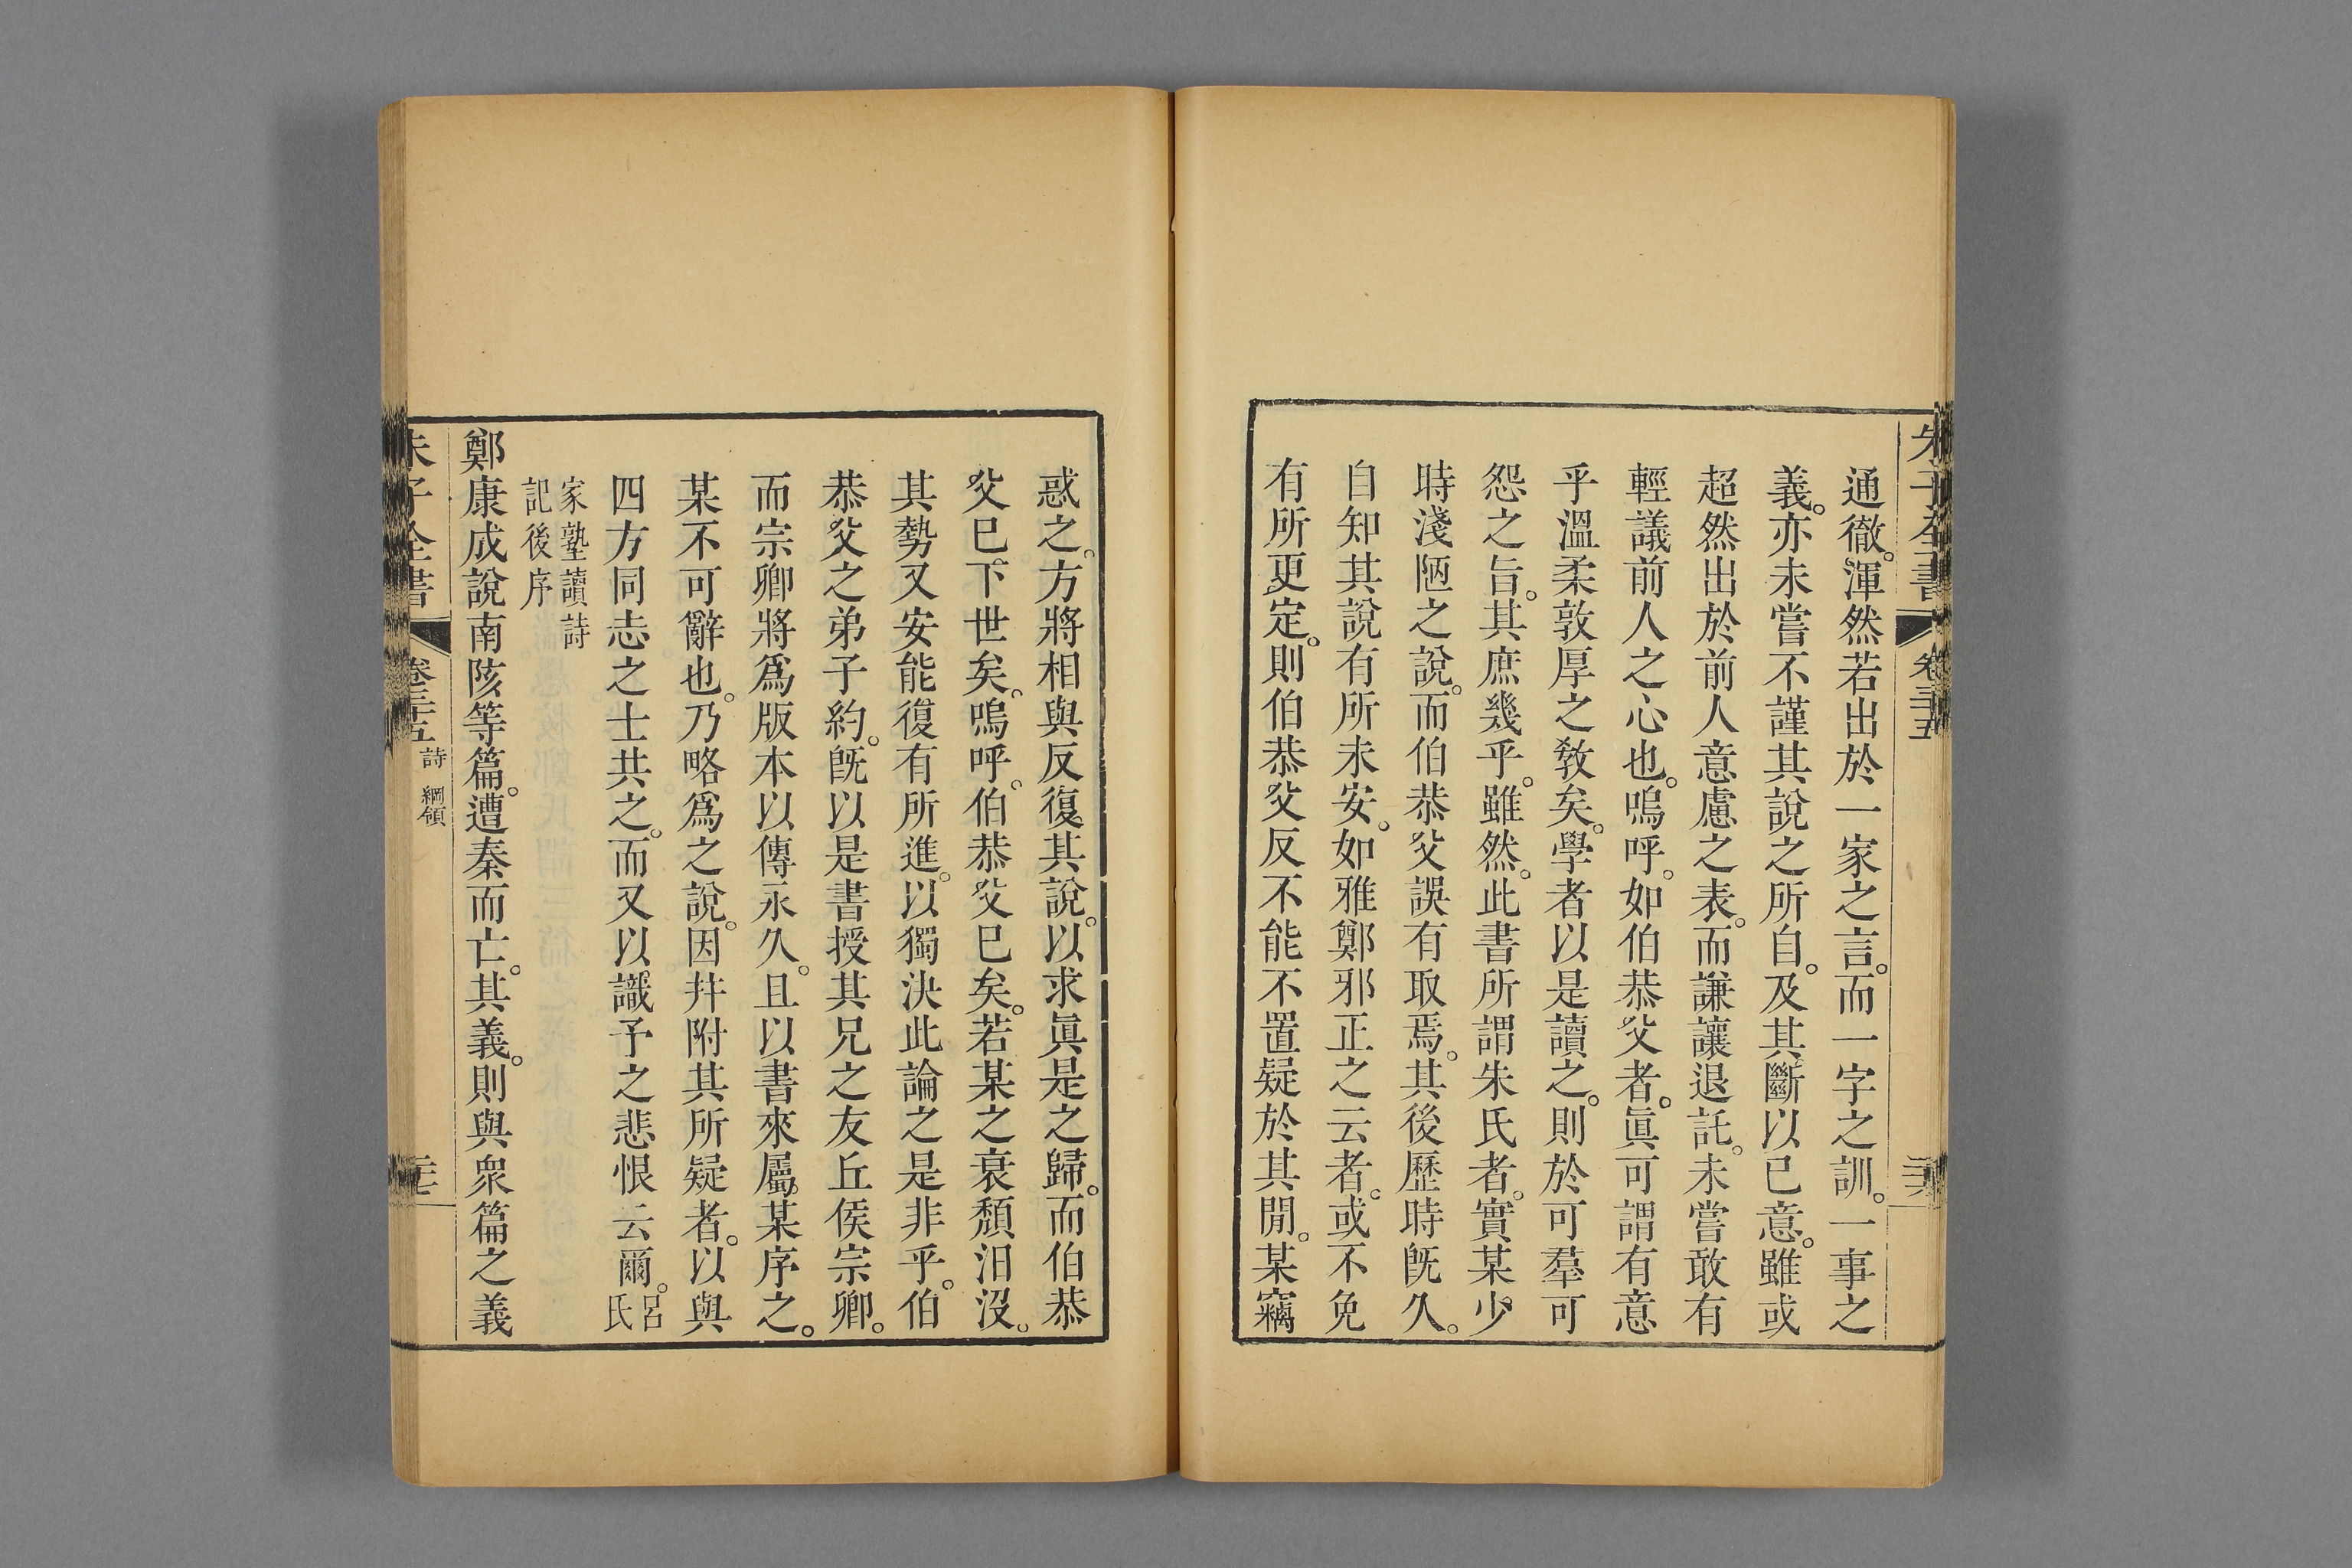 朱子全書 卷三十五
通徹。渾然若出於一家之言。而一字之訓。一事之
義。亦未嘗不謹其說之所自。及其斷以已意。雖或
超然出於前人意慮之表。而謙讓退託。未嘗敢有
輕議前人之心也。嗚呼。如伯恭父者。眞可謂有意
乎溫柔敦厚之敎矣。學者以是讀之。則於可羣可
怨之旨。其庶幾乎。雖然。此書所謂朱氏者。實某少
時淺陋之說。而伯恭父誤有取焉。其後歷時旣久。
自知其說有所未安。如雅鄭邪正之云者。或不免
有所更定。則伯恭父反不能不置疑於其閒。某竊
惑之。方將相與反復其說。以求眞是之歸。而伯恭
父巳下世矣。嗚呼。伯恭父巳矣。若某之衰頹汨沒。
其勢又安能復有所進。以獨決此論之是非乎。伯
恭父之弟子約。旣以是書授其兄之友丘侯宗卿。
而宗卿將爲版本以傳永久。且以書來屬某序之。
某不可辭也。乃略爲之說。因幷附其所疑者。以與
四方同志之士共之。而又以識予之悲恨云爾。呂氏
家塾讀詩
記後序
鄭康成說南陔等篇。遭秦而亡。其義。則與衆篇之義
朱子全書 卷三十五 詩 綱領